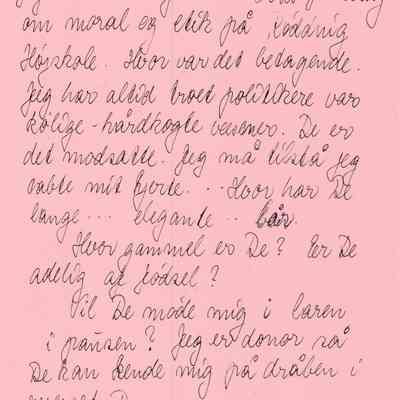 om moral og etik på Rødding
Højskole. Hvor var det betagende.
Jeg har altid troet politikere var
kølige - hårdkogte væsener. De er
det modsatte. Jeg må tilstå jeg
tabte mit hjerte. .. Hvor har De
lange ... elegante .. lår.
Hvor gammel er De? Er De
adelig af fødsel?
Vil De møde mig i baren
i pausen? Jeg er donor så
De kan kende mig på dråben i